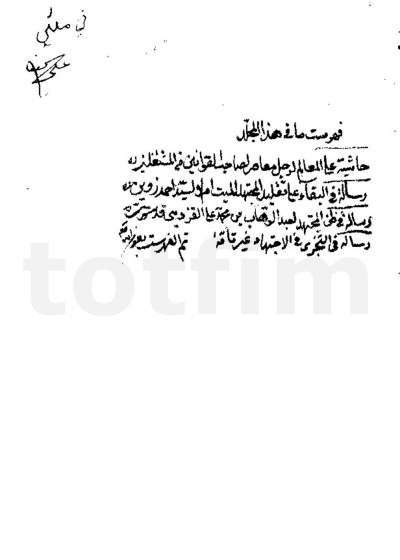 في ملكي
فهرست ما في هذا المجلد
حاشية على المعالم لرجل معاصر لصاحب القوانين في المشتغلين
رسالة في البقاء على تقليد المجتهد الميت للسيد احمد
رسالة في ظن المجتهد لعبد الوهاب بن محمد علي القزويني قدس سره
رسالة في التجزي في الاجتهاد غير تامة تم الفهرست بعون الله
totfim